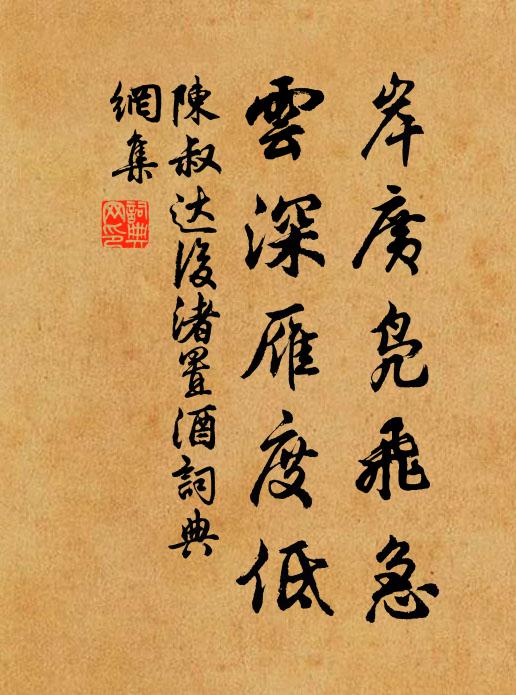 岸廣凫飛急
雲深雁度低
陳叔达後渚置酒詞典
網集
詞典
网印